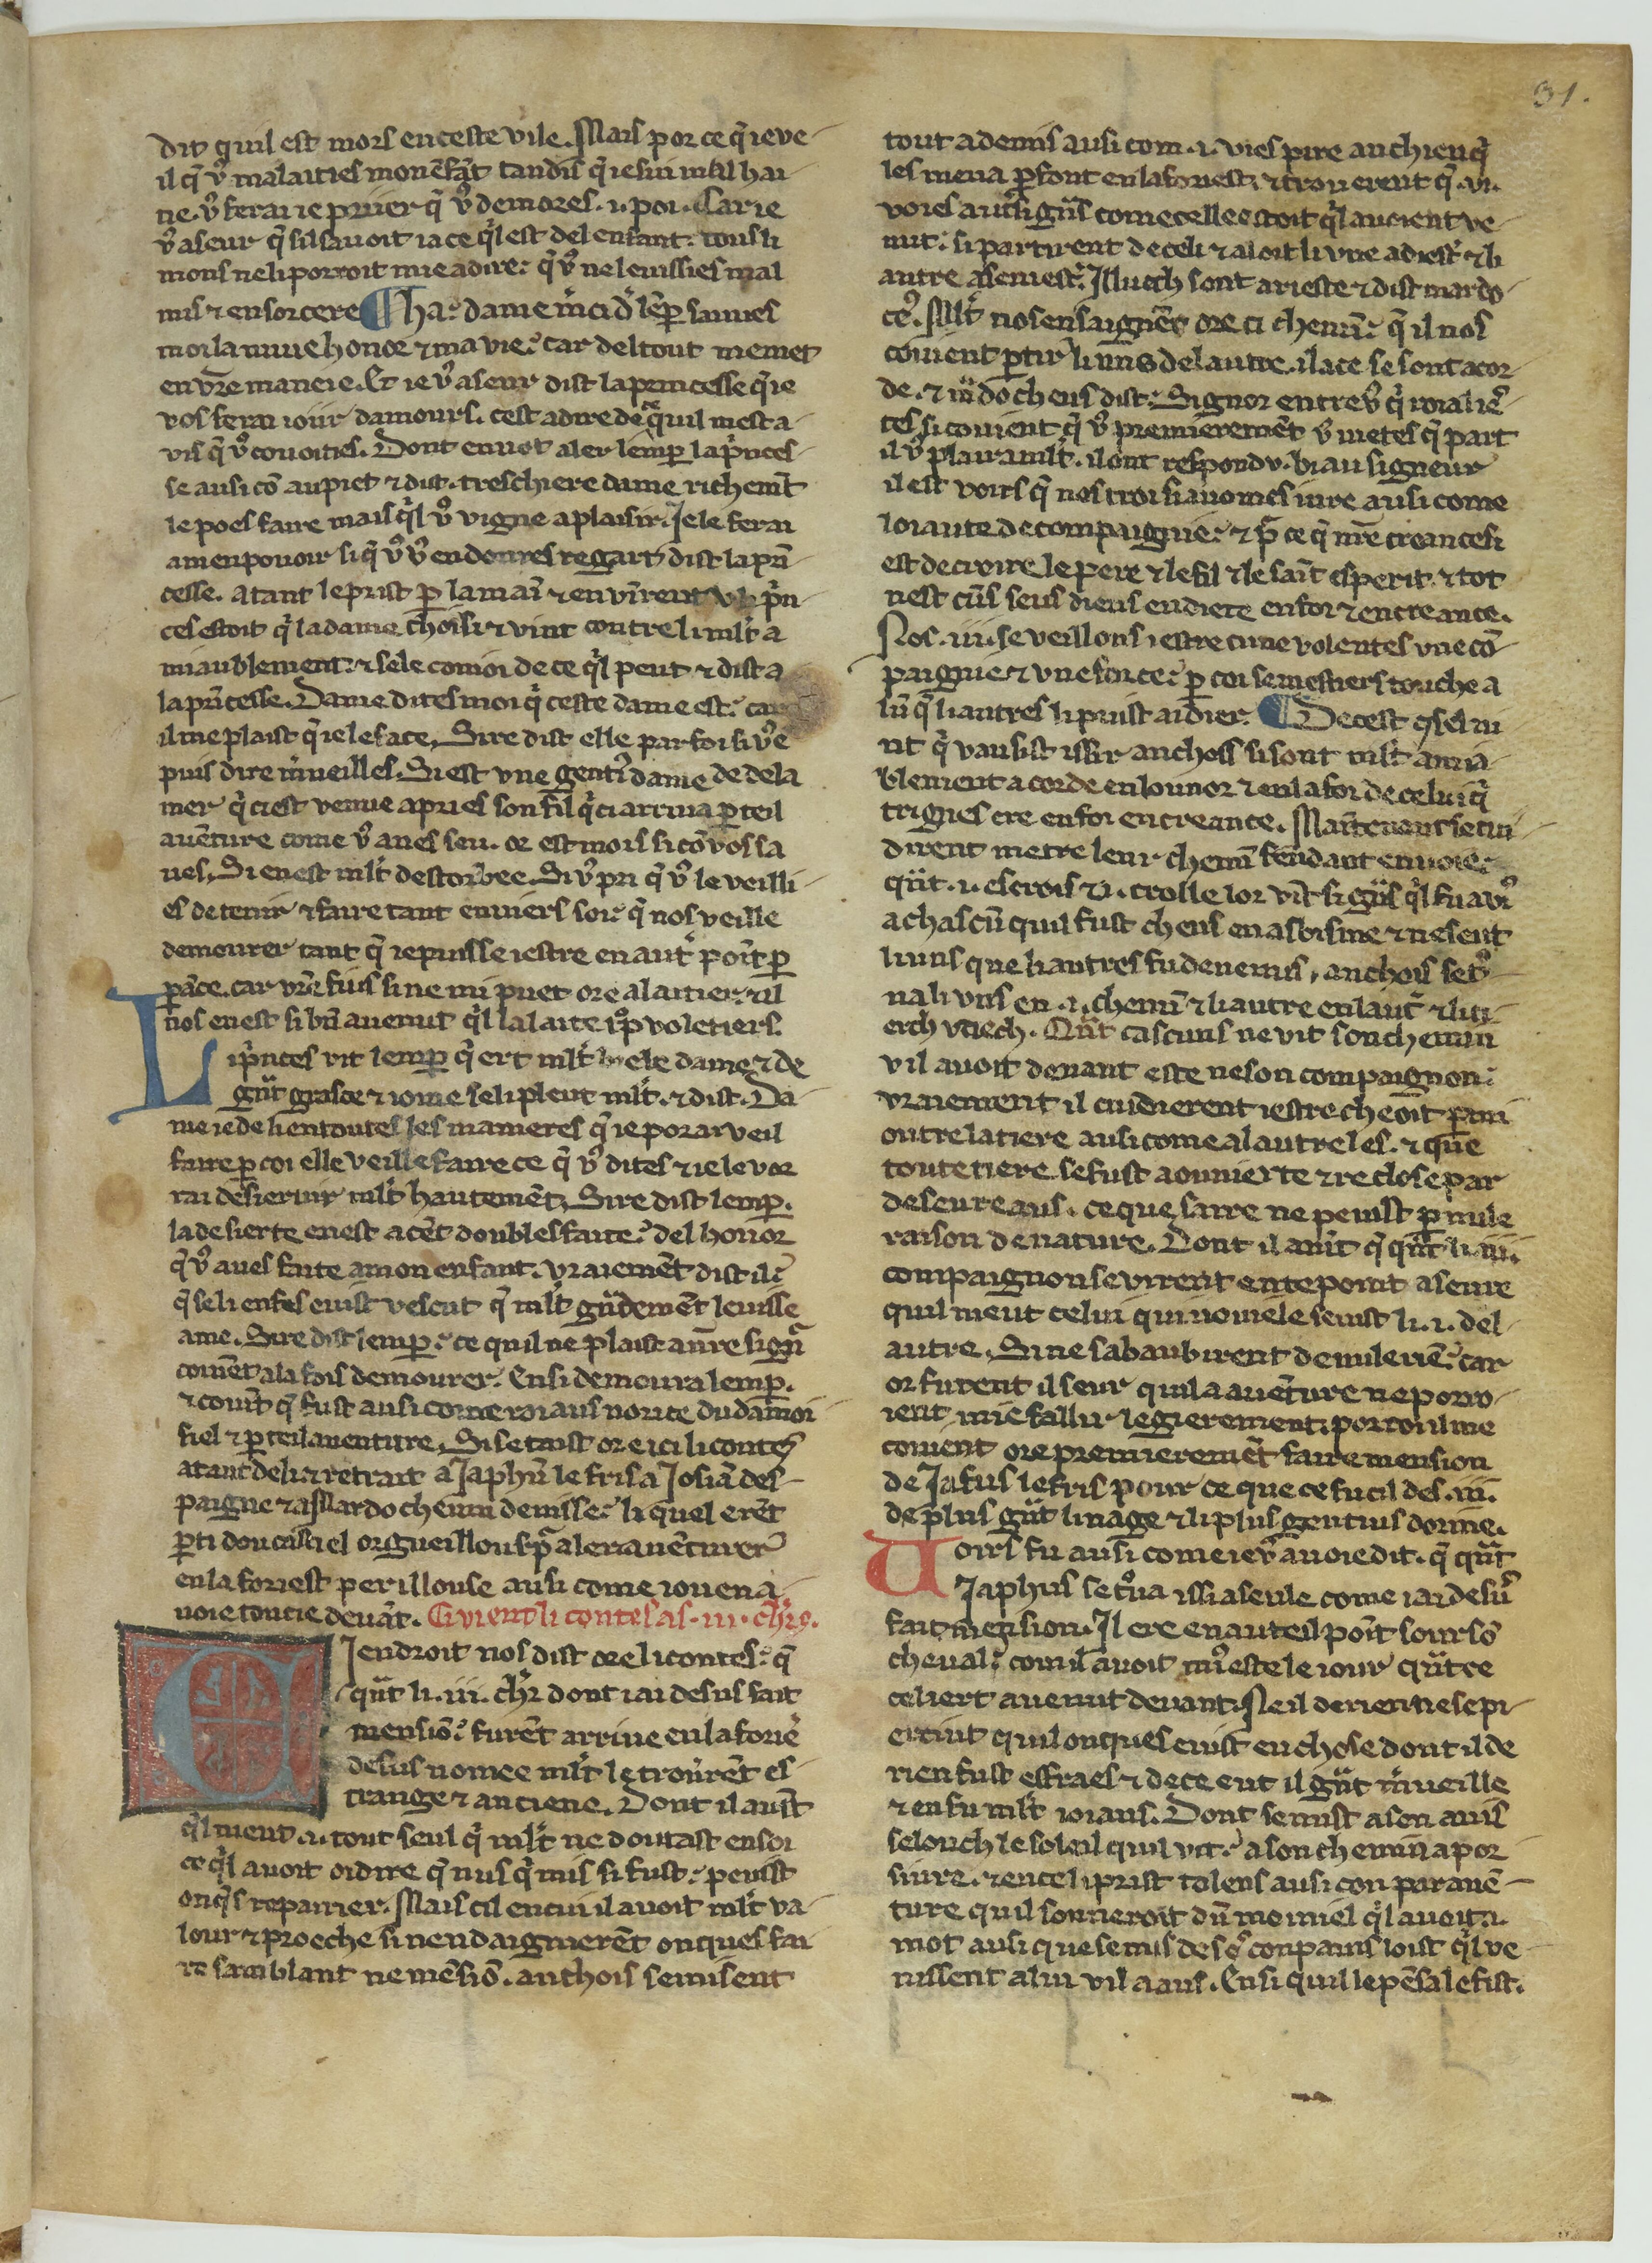 31.
dit quil est mors en ceste vile. Mais por ce q̃ ie ve
il q̃ vꝰ malaities mon ẽfãt tandis q̃ ie sui
ne. vꝰ ferai ie priier q̃ vꝰ demores .i. poi. Car ie
vꝰ aseur q̃ sil sauoit ia ce q̃l est del enfant: tous li
mons ne li porroit mie adire: q̃ vꝰ ne leuissies mal
mis ⁊ ensorcere ¶ Ha: dame m̃ci dist lẽp̲ saues
moi la miue honor ⁊ ma vie: car del tout me met
en vr̃e maneie. Et ie vꝰ aseur dist la princesse q̃ ie
vos ferai iour damours. cest adire de q̃ quil mest a
vis q̃ vꝰ couoities. Dont en uot aler lemp̲ la p̃nces
se ausi cõ au piet ⁊ dist. treschiere dame richemt̃
le poes faire mais q̃l vꝰ vigne a plaisir. Je le ferai
a men pouoir si q̃ vꝰ vꝰ en donres regart dist la prĩ
cesse. atant le prist p̲ la maĩ ⁊ en vĩrent v li pⁱn
ces estoit q̃ la dame choisi ⁊ vint contre li ml̃t a
miaublement: ⁊ se le conioi de ce q̃l peut ⁊ dist a
la prĩcesse. Dame dites moi q̃ ceste dame est: car
il me plaist q̃ ie le sace. Sire dist elle par foi si vꝰ e
puis dire m̃ueilles. Si est vne gentⁱ dame de dela
mer q̃ ci est venue apries son fil q̃ ci arriua p̲ teil
auẽture come vꝰ aues seu. or est mors si cõ vos sa
ues. Si en est ml̃t destorbee. Si vꝰ pri q̃ vꝰ le veilli
es detenir ⁊ faire tant enuiers soi: q̃ nos veille
demourer tant q̃ ie puisse iestre en autʳ poĩt p̲
p̲ãce. car vr̃e fius si ne mi puet ore alaitier. ⁊ il
nos en est si bñ auenut q̃l lalaite tᵒp volẽtiers.
Li pⁱnces vit lemp̲ q̃ ert ml̃t biele dame ⁊ de
gr̃t grasce ⁊ ione se li pleut ml̃t. ⁊ dist. Da
me ie de li en toutes les manieres q̃ ie porai veil
faire p̲ coi elle veille faire ce q̃ vꝰ dites ⁊ ie le vor
rai desieruir ml̃t hautemẽt. Sire dist lemp̲.
la desierte en est a cẽt doubles faite: del honor
q̃ vꝰ aues faite a mon enfant. vraiemẽt dist il:
q̃ se li enfes euist vescut q̃ ml̃t gr̃demẽt leuisse
ame. Sire dist lemp̲: ce quil ne plaist a nr̃e signᵒ
couiẽt a la fois demourer. Ensi demoura lemp̲.
⁊ couĩt q̃ fust ausi come roiaus norice du damoi
siel ⁊ p̲ teil auenture. Si se taist ore ici li contes
atant de li ⁊ retrait a Japhũ le fris a Josiã des
paigne ⁊ a Mardocheum de nisse: li quel erẽt
p̲ti dou castiel orgueillous pᵒ aler auẽturer
en la foriest perillouse ausi come iou en a
uoie touchie deuãt. Ci vient li contes as .iii. ch̃rs.
Ciendroit nos dist ore li contes: q̃
qᵃñt li .iii. ch̃r dont iai desus fait
mensiõ: furẽt arriue en la forie
desus nomee ml̃t le trouerẽt es
trange ⁊ anciene. Dont il auist
q̃l nient .i. tout seul q̃ ml̃t ne doutast en soi
ce q̃l auoit oi dire q̃ nus q̃ mis si fust: peuist
onq̃s repairier. Mais cil en cui il auoit ml̃t va
lour ⁊ proeche si nen daignierẽt onques fai
re samblant ne mẽsiõ. anchois se misent
tout a demis ausi com .i. vies pire anchien q̃
les mena p̲font en la foriest. ⁊ trouerent q̃ .iii.
voies autresi gr̃ns come celle estoit q̃l auoient ve
nut: si partirent de celi ⁊ aloit li vne a diestʳ ⁊ li
autre a seniestʳ. Illuech sont arieste ⁊ dist mardo
ceꝰ. Ml̃t nos ensaignẽt ore ci chemĩ: q̃ il nos
couient p̲tir li uns del autre. il a ce se sont acor
de. ⁊ mʳdocheus dist: Signor entre vꝰ q̃ roial iẽ
tes si couient q̃ vꝰ premieremẽt vꝰ metes q̃ part
il vꝰ plaira ml̃t. il ont respondu. biau signeur
il est voirs q̃ nos troi si auomes iure ausi come
loiaute de compaignie: ⁊ pᵒ ce q̃ nr̃e creance si
est de croire le pere ⁊ le fil ⁊ le saĩt esperit. ⁊ tot
nest cũs seus dieus en diete en foi ⁊ en creance.
Nos .iii. se veillons iestre dune volentes vne cõ
paignie ⁊ vne force: p̲ coi se mestiers touche a
lũ q̃ li autres li puist aidier. ¶ De cest
nt q̃ vausist issir anchois si sont ml̃t amia
blement acorde en lounor ⁊ en la foi de celui q̃
trigies ere en foi en creance. Maĩtenant se cui
dirent metre leur chemĩ fendant en uoie:
qᵃñt .i. escrois ⁊ .i. crolle lor vĩt si gr̃ns q̃l fu auꝰ
a chascũ quil fust cheus en abisme ⁊ ne seut
li uns que li autres fu deuenus, anchois se tᵒ
ua li vns en .i. chemĩ ⁊ li autre en lautʳ ⁊ li ti
erch v tiech. Qᵃñt cascuns ne vit son chemin
v il auoit deuant este ne son compaignon:
vraiement il cuidierent iestre cheoit p̲mi
outre la tiere ausi come al autre les. ⁊ que
toute tiere se fust aouuierte ⁊ reclose par
deseure aus. ce que faire ne peuist p̲ nule
raison de nature. Dont il auĩt q̃ qᵃñt li .iii.
compaignon se virent en tepoint a seure
quil nieut celui qui nouiele seuist li .i. del
autre. Si ne sabaubirent de nule riẽ: car
or furent il seur quil a auẽture ne porro
ient mie fallir legierement. por coi il me
couient ore premieremẽt faire mension
de Jafus le fris pour ce que ce fu cil des .iii.
de plus gr̃t linage ⁊ li plus gentius dome.
Voirs fu ausi come ie vꝰ auoie dit. q̃ qᵃñt
Japhus se tᵒua issi a seule come iai desus
fait mension. Il ere en auteil poĩt sour sõ
cheual: com il auoit mis este le iour qᵃñt ce
celi ert auenut deuant. Ne il de rien ne se pi
erciut quil onques euist eu chose dont il de
rien fust effraes ⁊ de ce eut il gr̃t m̃ueille
⁊ en fu ml̃t ioiaus. Dont se mist a son auis
selonch le soleil quil vit: a son chemin a por
siure. ⁊ en cel i prist talens ausi con par auẽ
ture quil sonneroit dũ moiniel q̃l auoit .i.
mot ausi que se nus de sꝰ conpains loist q̃l ve
nissent a lui v il a aus. Ensi quil le pẽsa le fist.